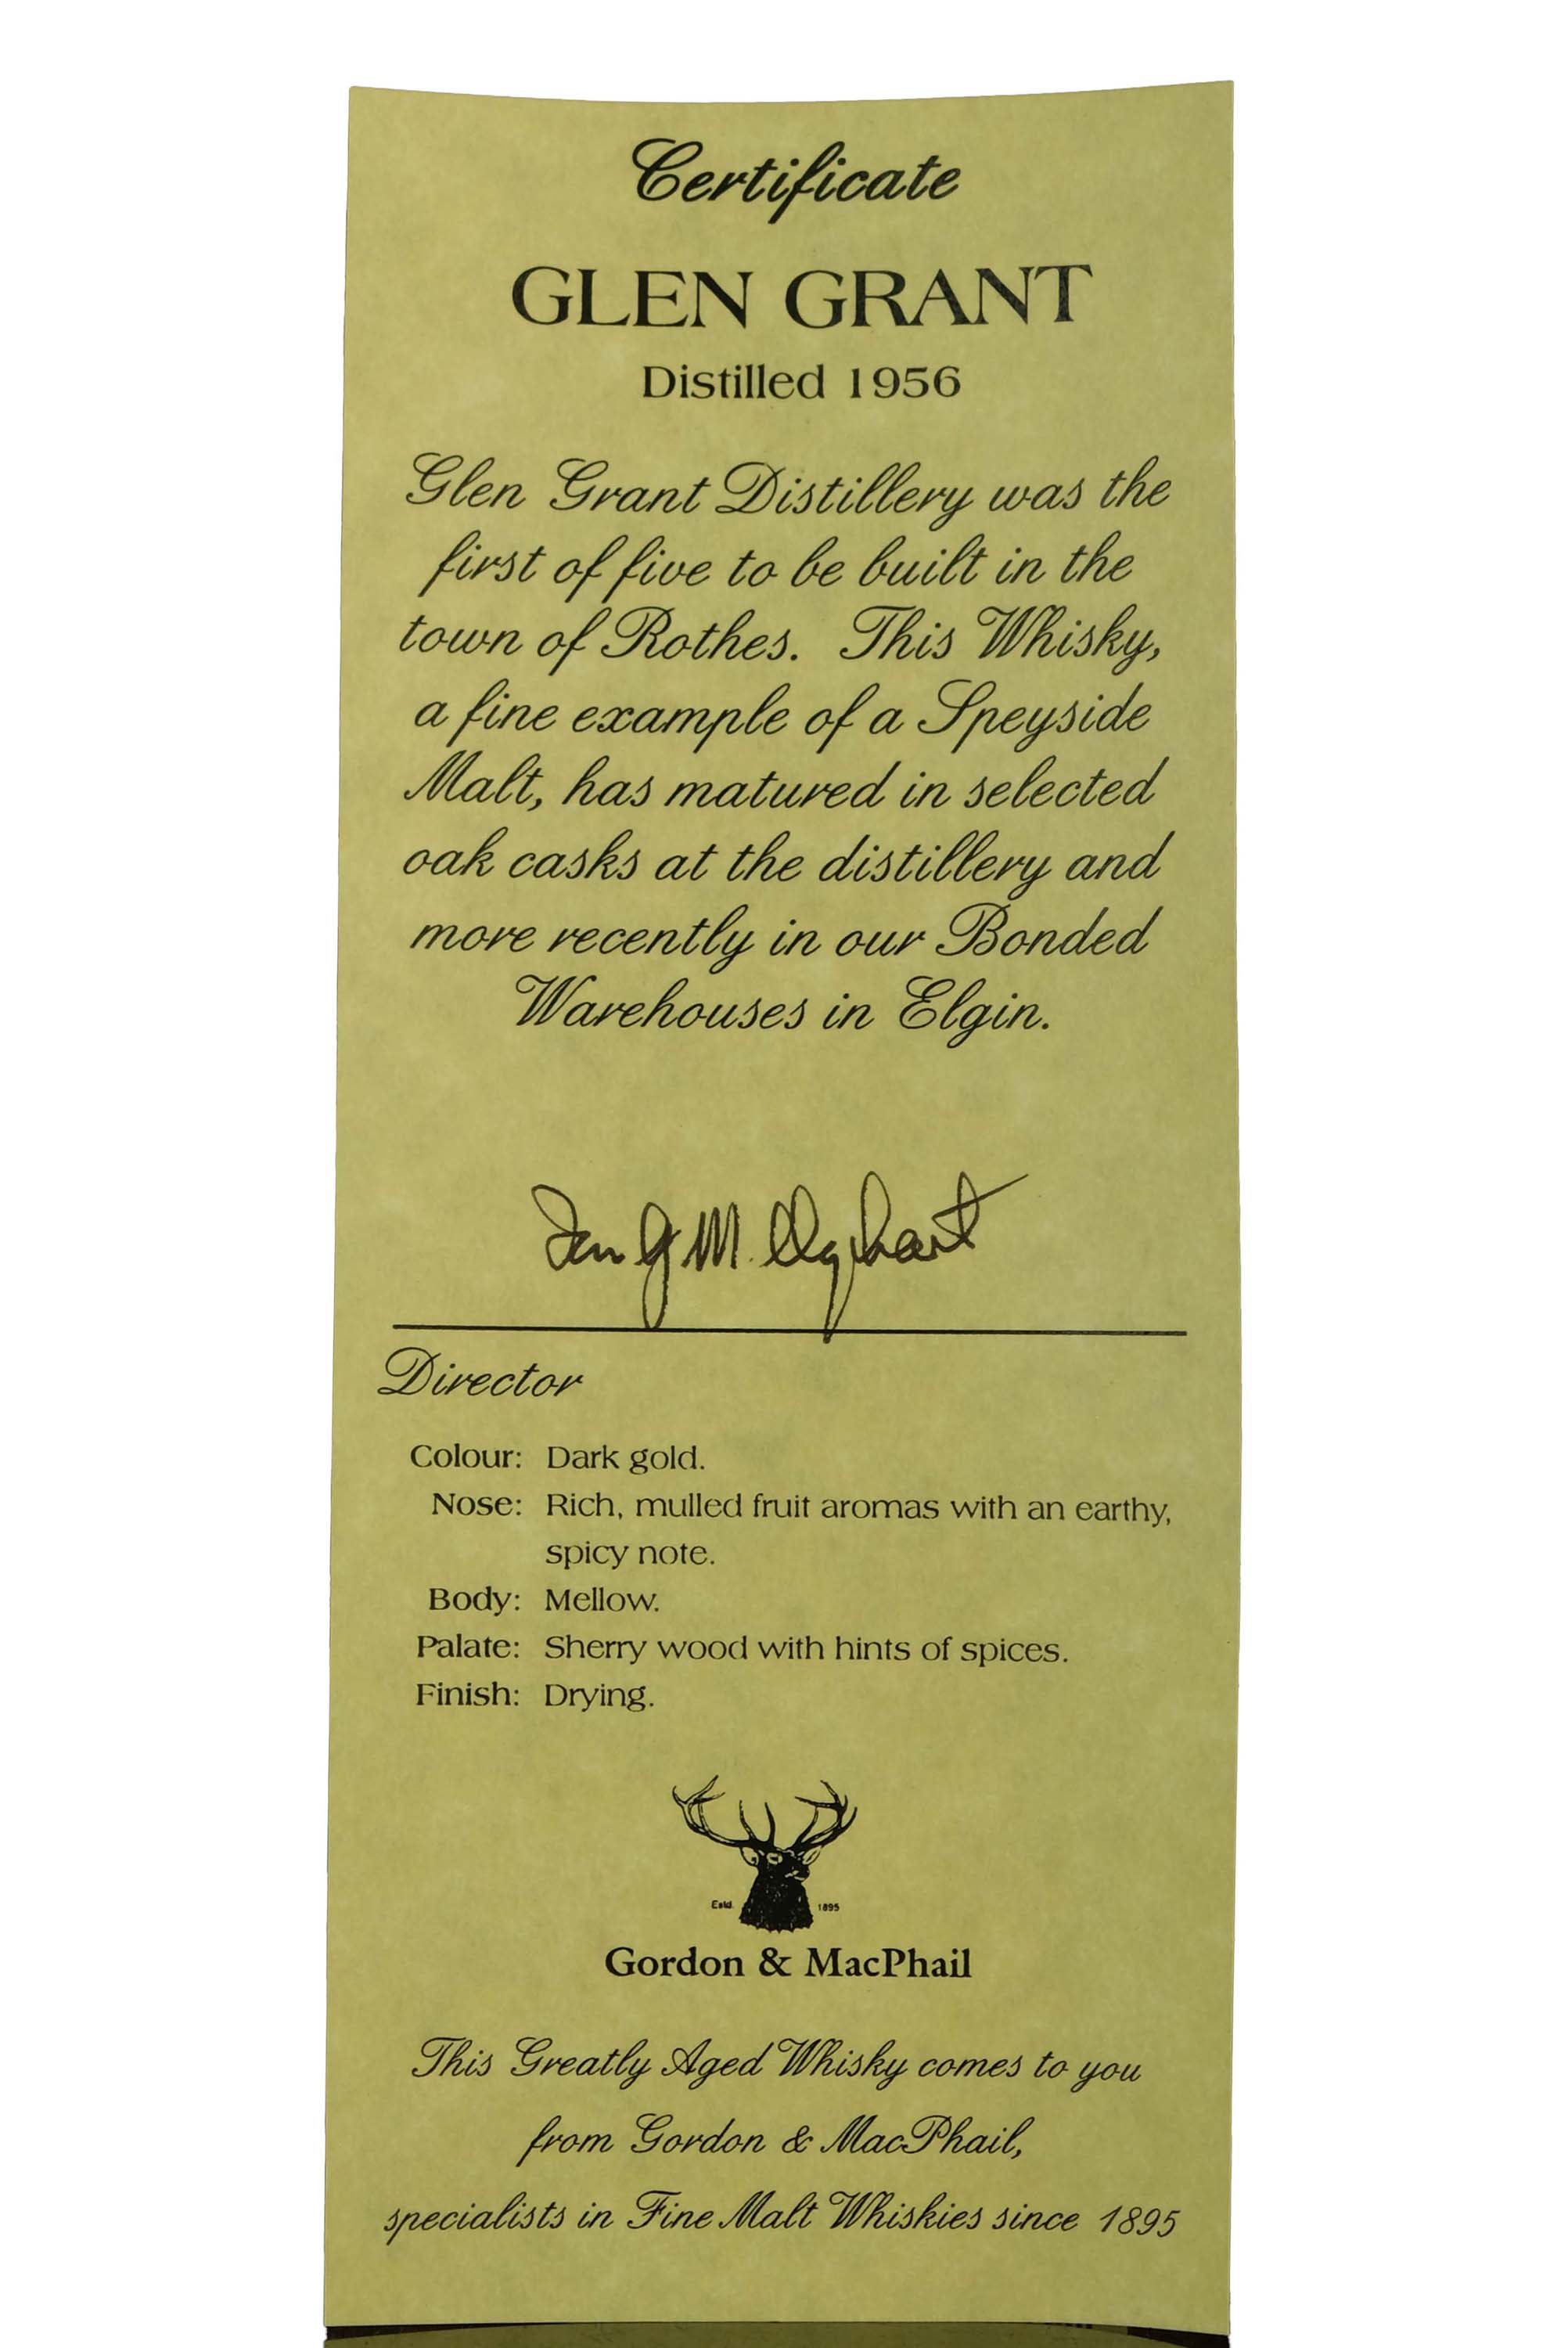 Certificate
GLEN GRANT
Distilled 1956
Glen Grant Distillery was the
first of five to be built in the
town of Rothes. This Whisky,
a fine example of a Speyside
Malt, has matured in selected
oak casks at the distillery and
more recently in our Bonded
Warehouses in Elgin.
Director
Colour: Dark gold.
Nose: Rich, mulled fruit aromas with an earthy,
spicy note.
Body: Mellow.
Palate: Sherry wood with hints of spices.
Finish: Drying.
Estd. 1895
Gordon & MacPhail
This Greatly Aged Whisky comes to you
from Gordon & MacPhail,
specialists in Fine Malt Whiskies since 1895